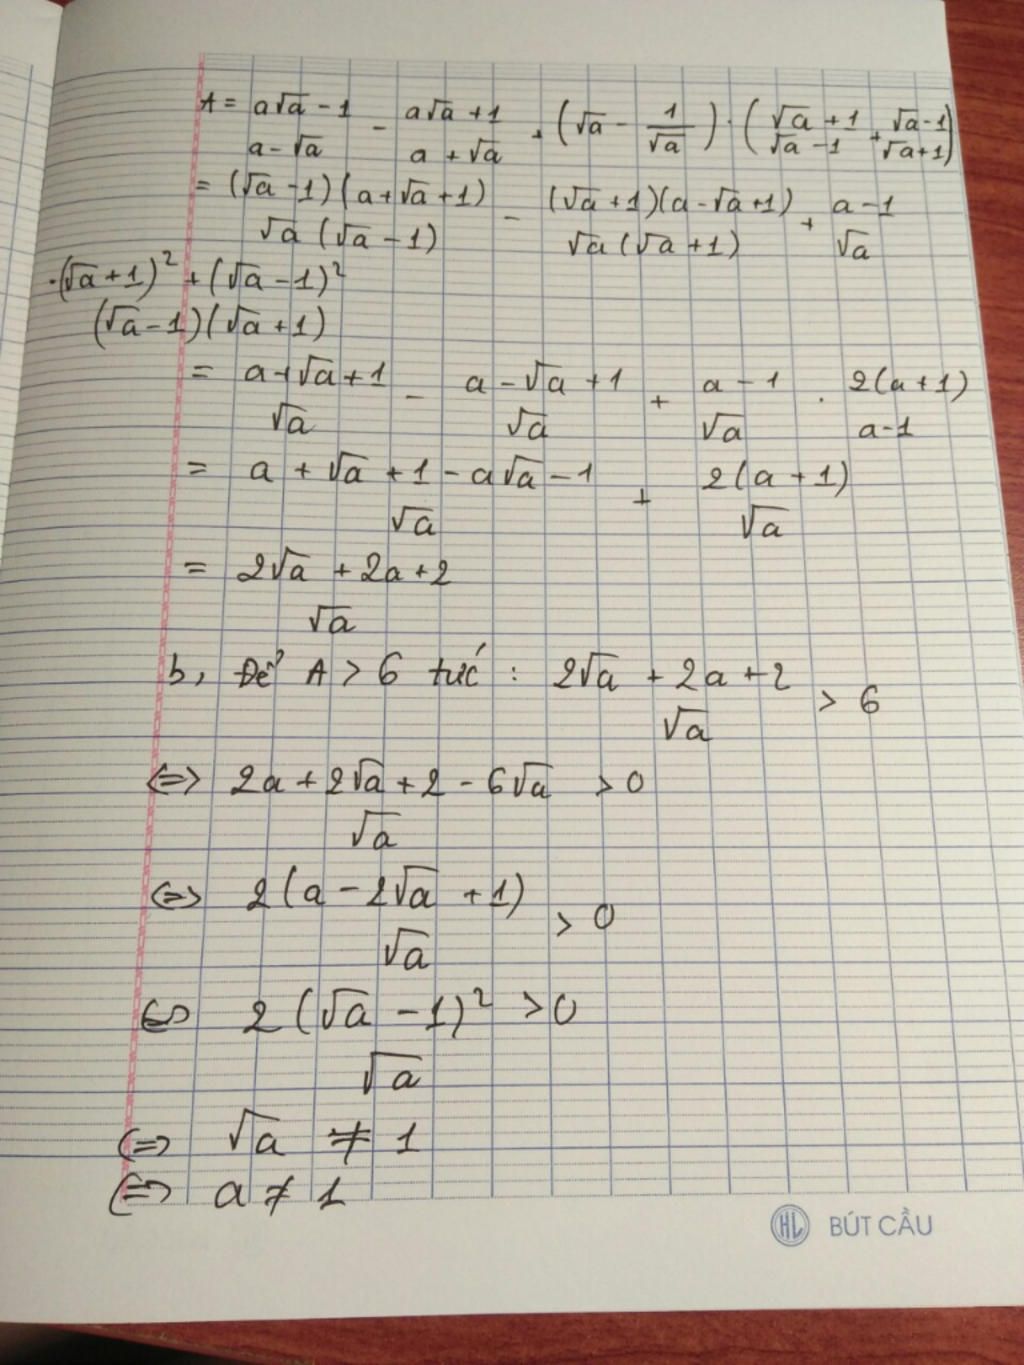 A = a√a - 1 - a√a + 1 + (√a - 1/√a) . (√a + 1 + √a - 1)
a - √a a + √a √a - 1 √a + 1
= (√a - 1)(a + √a + 1) - (√a + 1)(a - √a + 1) + a - 1
√a (√a - 1) √a (√a + 1) √a
. (√a + 1)² + (√a - 1)²
(√a - 1)(√a + 1)
= a + √a + 1 - a - √a + 1 + a - 1 . 2(a + 1)
√a √a √a a - 1
= a + √a + 1 - a √a - 1 + 2(a + 1)
√a √a
= 2√a + 2a + 2
√a
b, Để A > 6 tức : 2√a + 2a + 2 > 6
√a
<=> 2a + 2√a + 2 - 6√a > 0
√a
<=> 2(a - 2√a + 1) > 0
√a
<=> 2(√a - 1)² > 0
√a
<=> √a ≠ 1
<=> a ≠ 1
HL BÚT CẦU